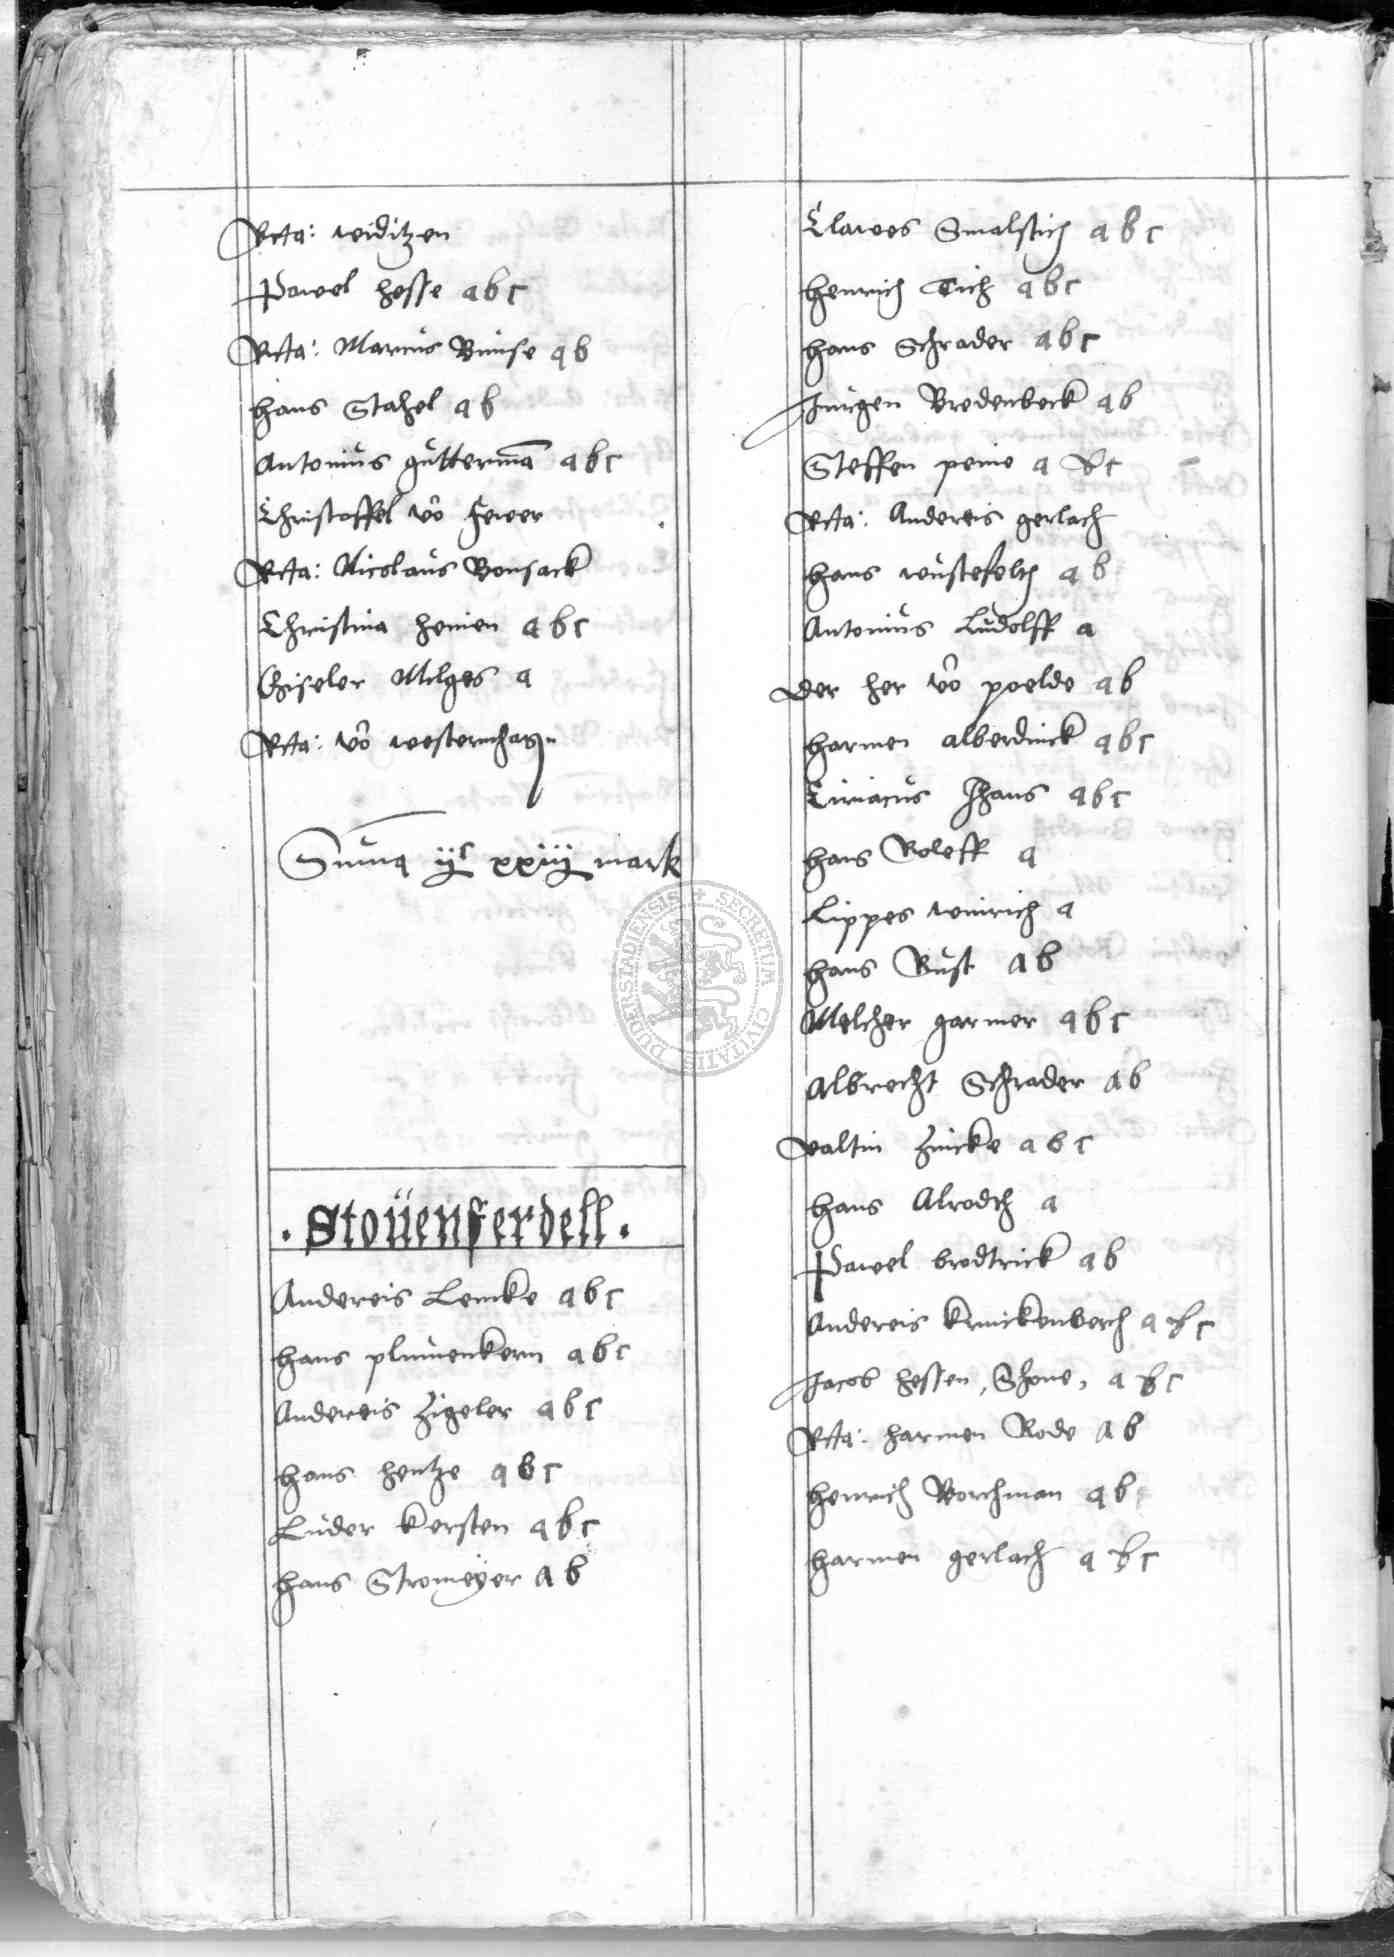 Rcta: widitzen
Pawel Hesse a b c
Rcta: Marcus Bunse a b
Hans Stahel a b
Antonius gutterma a b c
Christoffel vo Fewer
Rcta: Nicolaus Bonsack
Christina Heinen a b c
Giseler Milges a
Rcta: vo westernhagn
Suma ijc xxiij mark
. Stoüenferdell .
Andereis Lencke a b c
Hans plumenkern a b c
Andereis Zigeler a b c
Hans Hentze a b c
Luder Kersten a b c
Hans Stromeyer a b
Clawes Smalstich a b c
Henrich Tich a b c
Hans Schrader a b c
Jurgen Bredenbeck a b
Steffen peine a b c
Rcta: Andereis gerlach
Hans wustefelth a b
Antonius Ludolff a
Der her vo poelde a b
Harmen alberdinck a b c
Ciriacus Jhans a b c
Hans Roleff a
Lippes winrich a
Hans Bust a b
Melcher garmer a b c
Albrecht Schrader a b
Valtin Zincke a b c
Hans Alrodth a
Pawel brodtrick a b
Andereis Krinckenberch a b c
Jacob Hessen, Shone, a b c
Rcta: Harmen Rode a b
Henrich Borchman a b
Harmen gerlach a b c
SECRETUM CIVITATIS DUDERSTADIENSIS